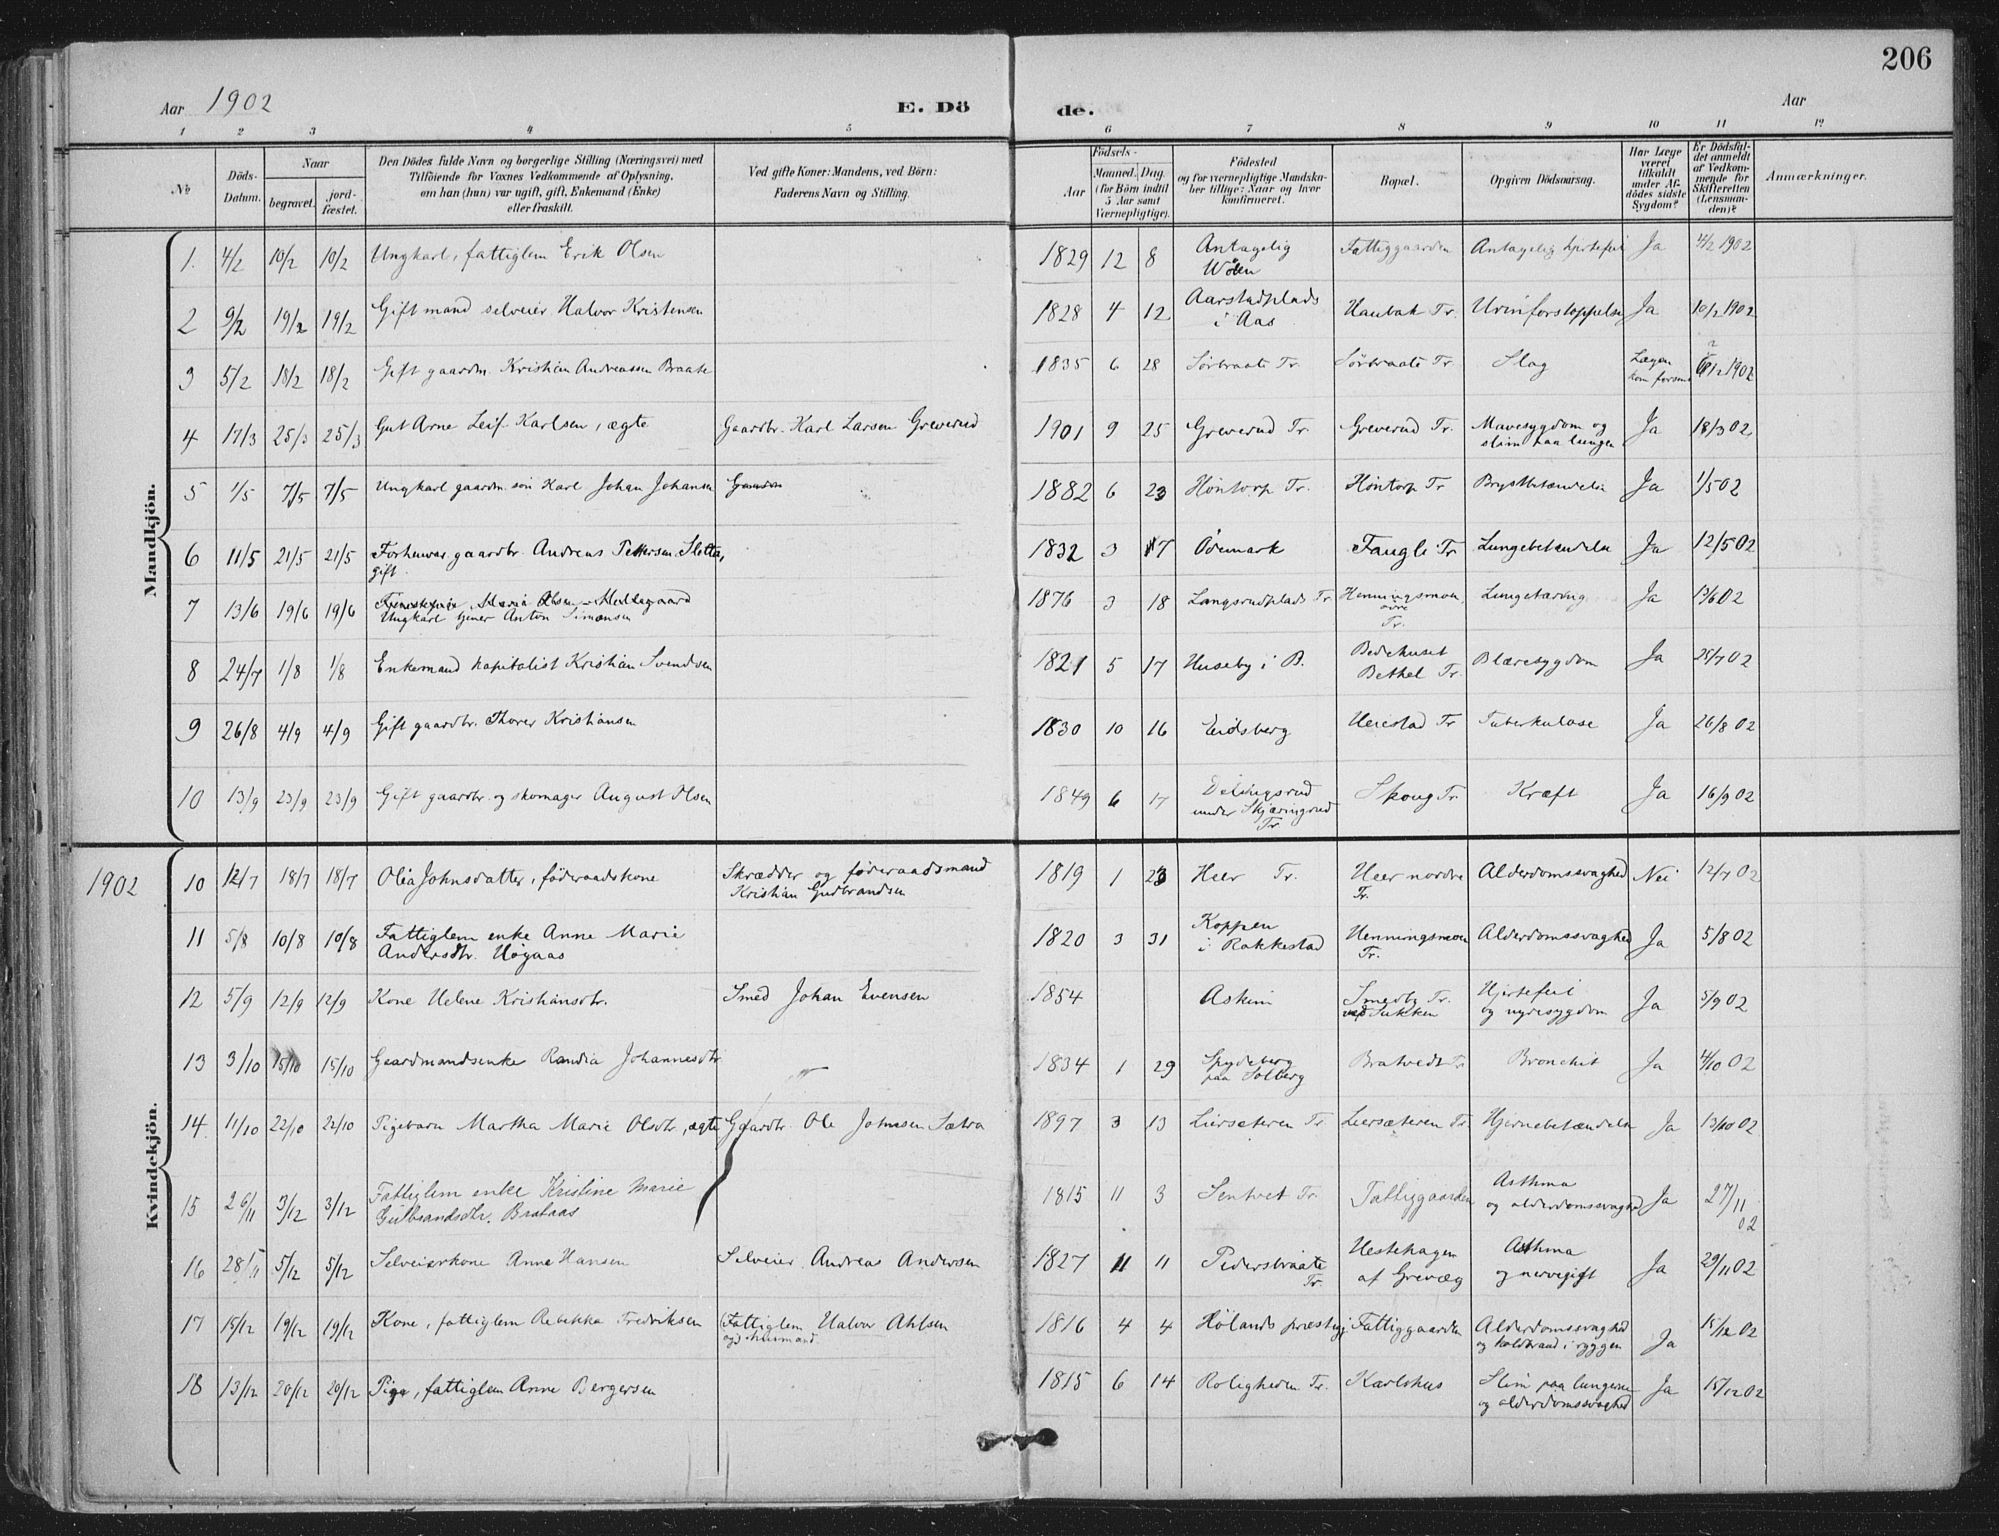 206
Aar 1902 E. Dö de. Aar
1 2 3 4 5 6 7 8 9 10 11 12
No
Döds-Datum.
Naar
begravet.
jord-fæstet.
Den Dödes fulde Navn og borgerlige Stilling (Næringsvei) med
Tilföiende for Voxnes Vedkommende af Oplysning,
om han (hun) var ugift, gift, Enkemand (Enke)
eller fraskilt.
Ved gifte Koner: Mandens, ved Börn:
Faderens Navn og Stilling.
Födsels-
Aar
Maaned. Dag.
(for Börn indtil
5 Aar samt
Værnepligtige).
Födested
og for værnepligtige Mandska-
ber tillige: Naar og hvor
konfirmeret.
Bopæl.
Opgiven Dödsaarsag.
Har Læge
været
tilkaldt
under Af-
dödes sidste
Sygdom?
Er Dödsfal-
det anmeldt
af Vedkom-
mende for
Skifteretten
(Lensman-
den)?
Anmærkninger.
Mandkjön.
1. 4/2 10/2 10/2 Ungkarl, fattiglem Erik Olsen 1829 12 8 Antagelig Fattiggaarden Antagelig hjertefeil Ja 4/2 1902
2 9/2 19/2 19/2 Gift mand selveier Halvor Kristensen 1828 4 12 Aarstadplads i Aas Haubak Tr. Urinforstoppelse Ja 10/2 1902
3 5/2 18/2 18/2 Gift gaardm. Kristian Andreassen Braate 1835 6 28 Sørbraate Tr. Sørbraate Tr. Slag Lægen kom forsent 1902
4 17/3 25/3 25/3 Gut Arne Leif Karlsen, ægte Gaardbr. Karl Larsen Greverud 1901 9 25 Greverud Tr. Greverud Tr. Mavesygdom og slim paa lungen Ja 18/3 02
5 1/5 7/5 7/5 Ungkarl gaardm. søn Karl Johan Johansen 1882 6 23 Høntorp Tr. Høntorp Tr. Brystbetændelse Ja 1/5 02
6 11/5 21/5 21/5 Forhenvær. gaardbr. Andreas Pettersen Sletta, gift. 1832 3 17 Ødemark Fangli Tr. Lungebetændelse Ja 12/5 02
7 13/6 19/6 19/6 Tjenestepige Maria Olsen Mellegaard
Ungkarl tjener Anton Simensen 1876 3 18 Langsrudplads Tr. Henningsmoen, øvre Tr. Lungetæring Ja 13/6 02
8 24/7 1/8 1/8 Enkemand kapitalist Kristian Svendsen 1821 5 17 Huseby i B. Bedehuset Bethel Tr. Blæresygdom Ja 25/7 02
9 26/8 4/9 4/9 Gift gaardbr. Thorer Kristiansen 1830 10 16 Eidsberg Herestad Tr. Tuberkulose Ja 26/8 02
10 13/9 23/9 23/9 Gift gaardbr. og skomager August Olsen 1849 6 17 under Skjæringrud Tr. Skoug Tr. Kræft Ja 16/9 02
Kvindekjön.
1902 10 12/7 18/7 18/7 Olea Johnsdatter, føderaadskone Skrædder og føderaadsmand Kristian Gudbrandsen 1819 1 23 Heer Tr. Heer nordre Tr. Alderdomssvaghed Nei 12/7 02
11 5/8 10/8 10/8 Fattiglem enke Anne Marie Andersdtr. Høgaas 1820 3 31 Koppen i Rakkestad Henningsmoen Tr. Alderdomssvaghed Ja 5/8 02
12 5/9 12/9 12/9 Kone Helene Kristiansdtr. Smed Johan Evensen 1854 Askim Smedby Tr. ved Sukken Hjertefeil og nyresygdom Ja 5/9 02
13 3/10 15/10 15/10 Gaardmandsenke Randia Johannesdtr 1834 1 29 Spydeberg paa Solberg Bratvedt Tr. Bronchit Ja 4/10 02
14. 11/10 22/10 22/10 Pigebarn Martha Marie Olsdtr, ægte Gaardbr. Ole Johnsen Sætra 1897 3 13 Liersæteren Tr Liersæteren Tr. Hjernebetændelse Ja 13/10 02
15 26/11 3/12 3/12 Fattiglem enke Kristine Marie Gulbrandsdtr. Brataas 1815 11 3 Sentvet Tr. Fattiggaarden Asthma og alderdomssvaghed Ja 27/11 02
16 28/11 5/12 5/12 Selveierkone Anne Hansen Selveier Andreas Andersen 1827 11 11 Pedersbraate Tr. Hestehagen af Grevæg Asthma og nervegift Ja 29/11 02
17 15/12 19/12 19/12 Kone, fattiglem Rebekka Fredriksen Fattiglem Halvor Ahlsen ogs. husmand 1816 4 4 Hølands præstegj. Fattiggaarden Alderdomssvaghed og koldbrand i ryggen Ja 15/12 02
18 13/12 20/12 20/12 Pige, fattiglem Anne Bergersen 1815 6 14 Roligheden Tr. Karlshus Slim paa lungerne og alderdomssvaghed Ja 15/12 02